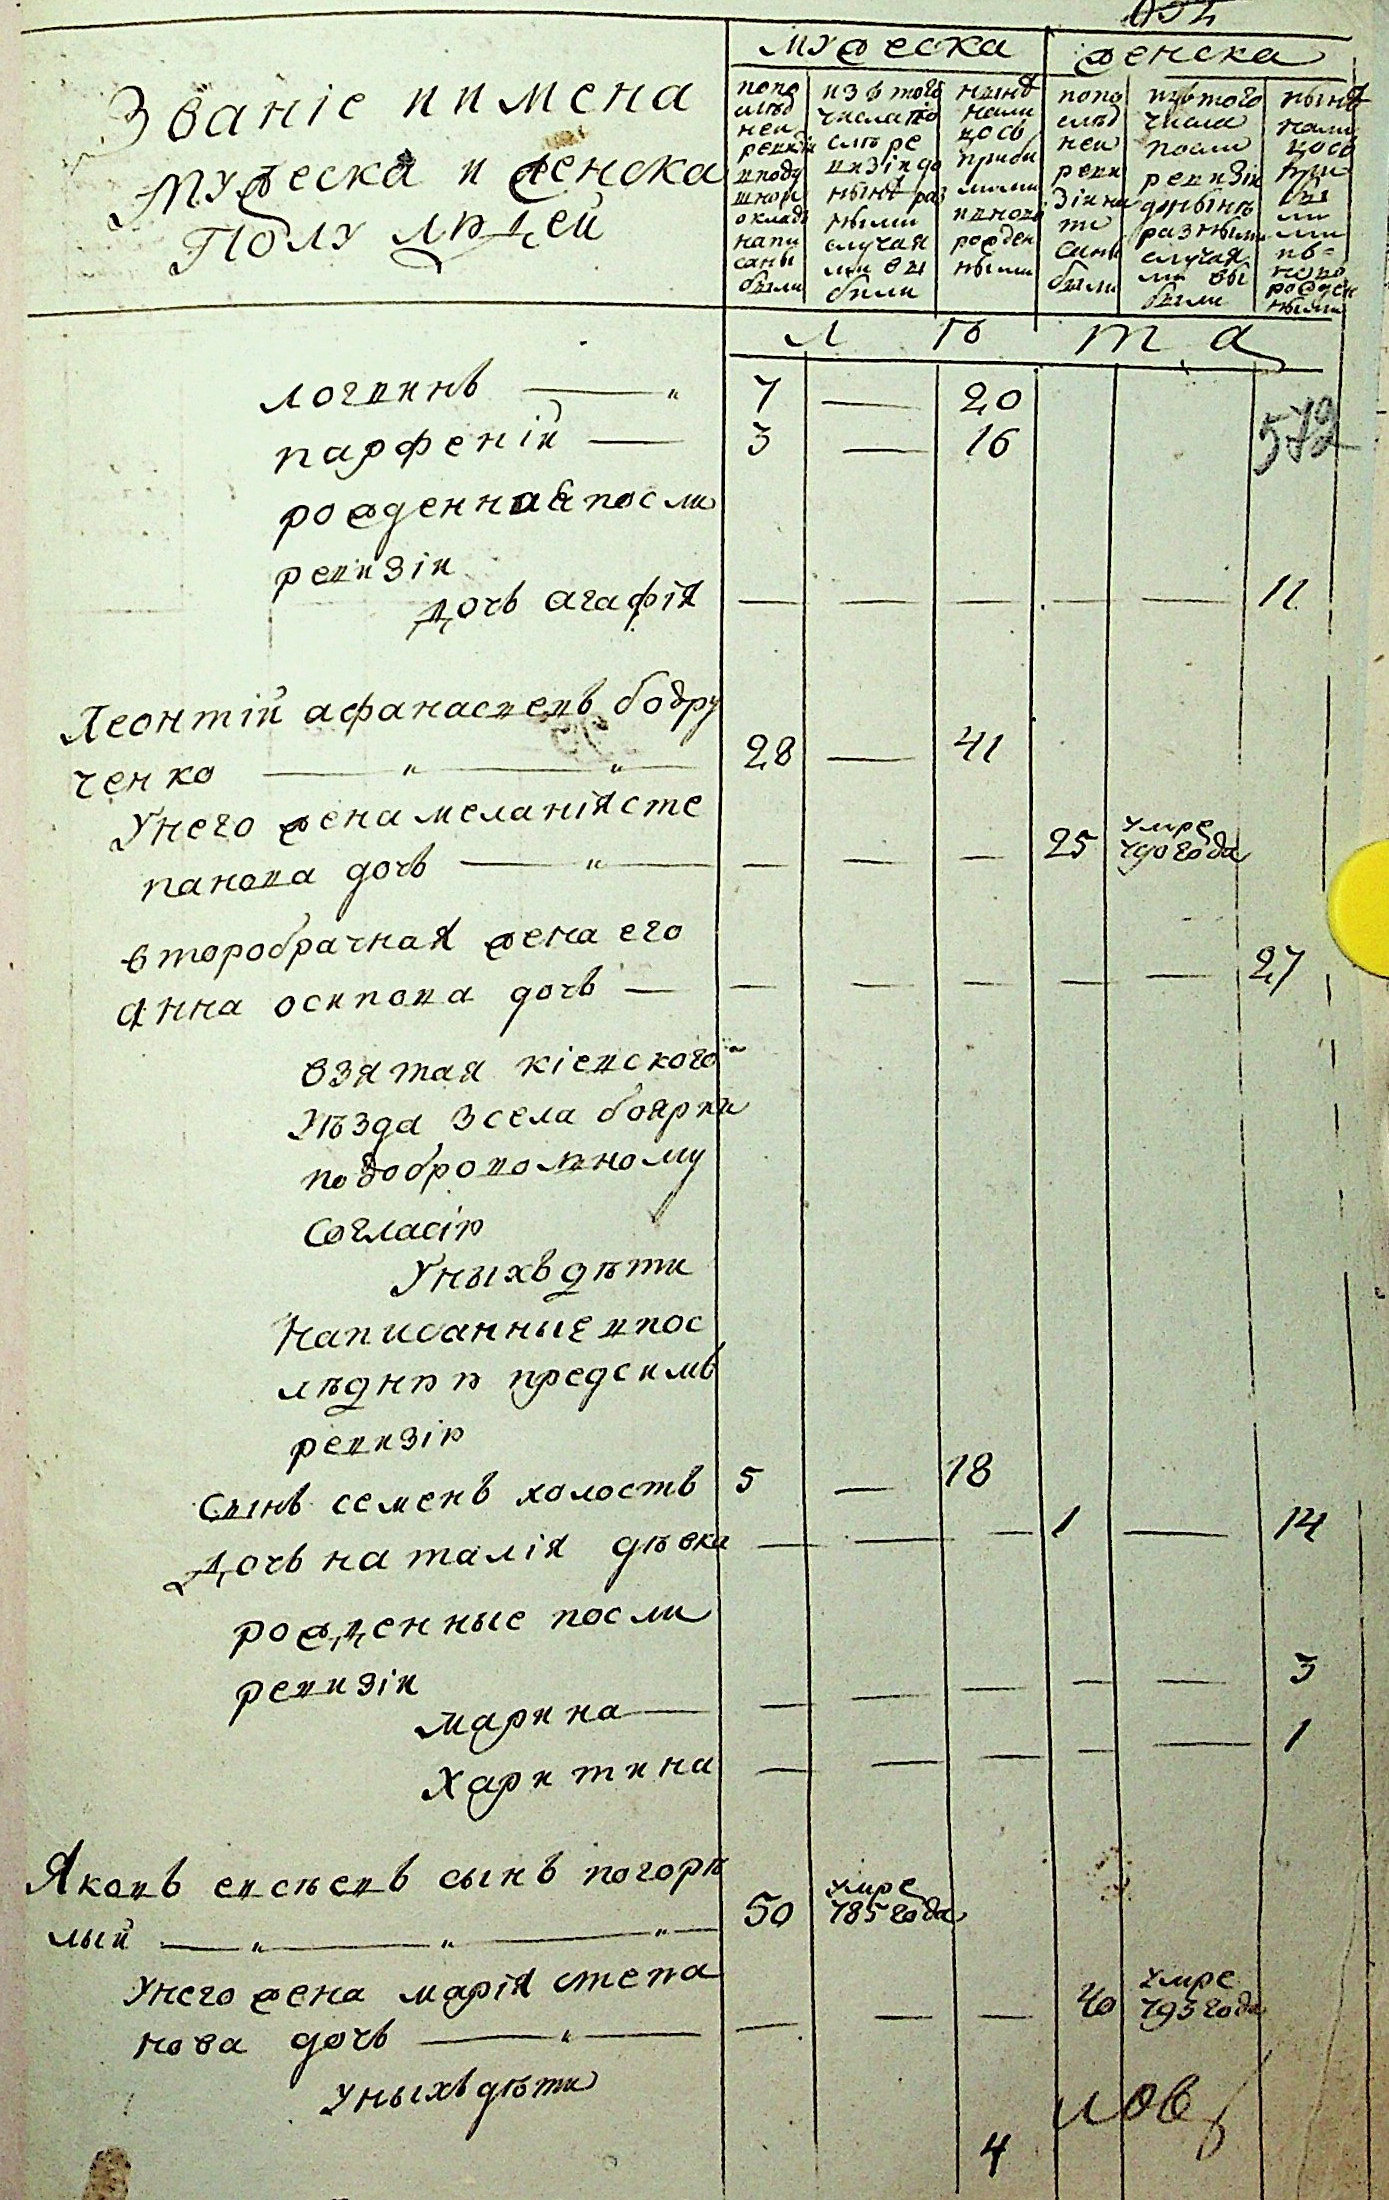 мужеска женска
Званіе имена
мужеска и женска
Полу людей
попо слѣд ней ревизіи в поду шной окладъ напи саны были
изъ того числа по слѣ ре визіи до нынѣ раз ными случая ми вы были
нынѣ нали цосъ прибы лыми и вново рожден ными
попо слѣд ней реви зіи на пи саны были
изъ того числа посли ревизіи донынѣ разными случая ми вы были
нынѣ нали цосъ при бы ли ми въ ново рожден ными
л ѣ т а
логвинъ 7 — 20
572
парфеній — 3 — 16
рожденная посли
ревизіи
дочь агафія — — — — — 11
Леонтій афанасиевъ бодру
ченко 28 — 41
Унего жена меланія сте
панова дочь — — — 25 умре 790 года
второбрачная жена его
Анна осипова дочь — — — — — — 27
взятая кіевского
уѣзда зсела боярки
подоброволному
согласію
Уныхъ дѣти
написанные впос
лѣднюю предсимъ
ревизію
Сынъ семенъ холостъ 5 — 18
дочь наталія дѣвка — — — 1 — 14
рожденные посли
ревизіи
марина — — — — — — 3
Харитина — — — — — 1
Яковъ евсѣевъ сынъ погорѣ
лый 50 умре 785 года
Унего жена марія степа
нова дочь — — — 40 умре 793 года
Уныхъ дѣти
4